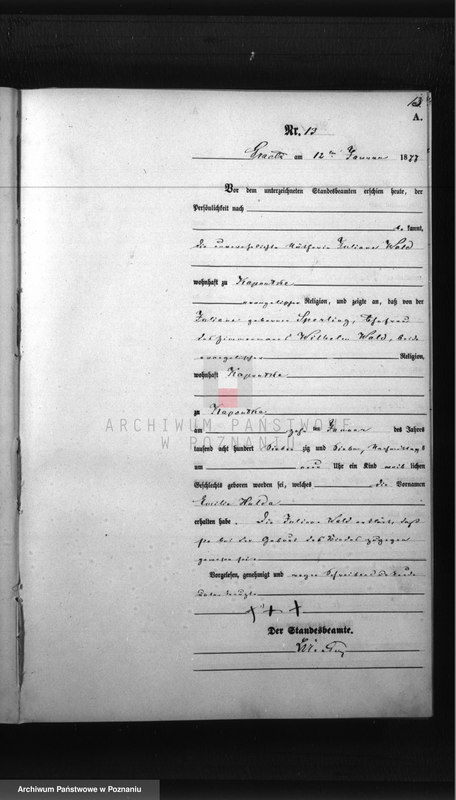 A.
Nr. 13
Graetz am 12ten Januar 1877
Vor dem unterzeichneten Standesbeamten erschien heute, der
Persönlichkeit nach
kannt,
die unverehelichte Juliane Wald
wohnhaft zu Kaponke
evangelischer Religion, und zeigte an, daß von der
Juliane geborenen Sperling, Ehefrau
des Zimmermanns Wilhelm Wald, beide
evangelischer Religion,
wohnhaft Kaponke
zu Kaponke
am im Januar des Jahres
tausend acht hundert sieben zig und sieben, Nachmittags
um neun Uhr ein Kind weib lichen
Geschlechts geboren worden sei, welches die Vornamen
Emilie Hulda
erhalten habe. Die Juliane Wald erklärt, daß
sie bei der Geburt des Kindes zugegen
gewesen sei.
Vorgelesen, genehmigt und wegen
+ + +
Der Standesbeamte.
ARCHIWUM PAŃSTWOWE
W POZNANIU
Archiwum Państwowe w Poznaniu